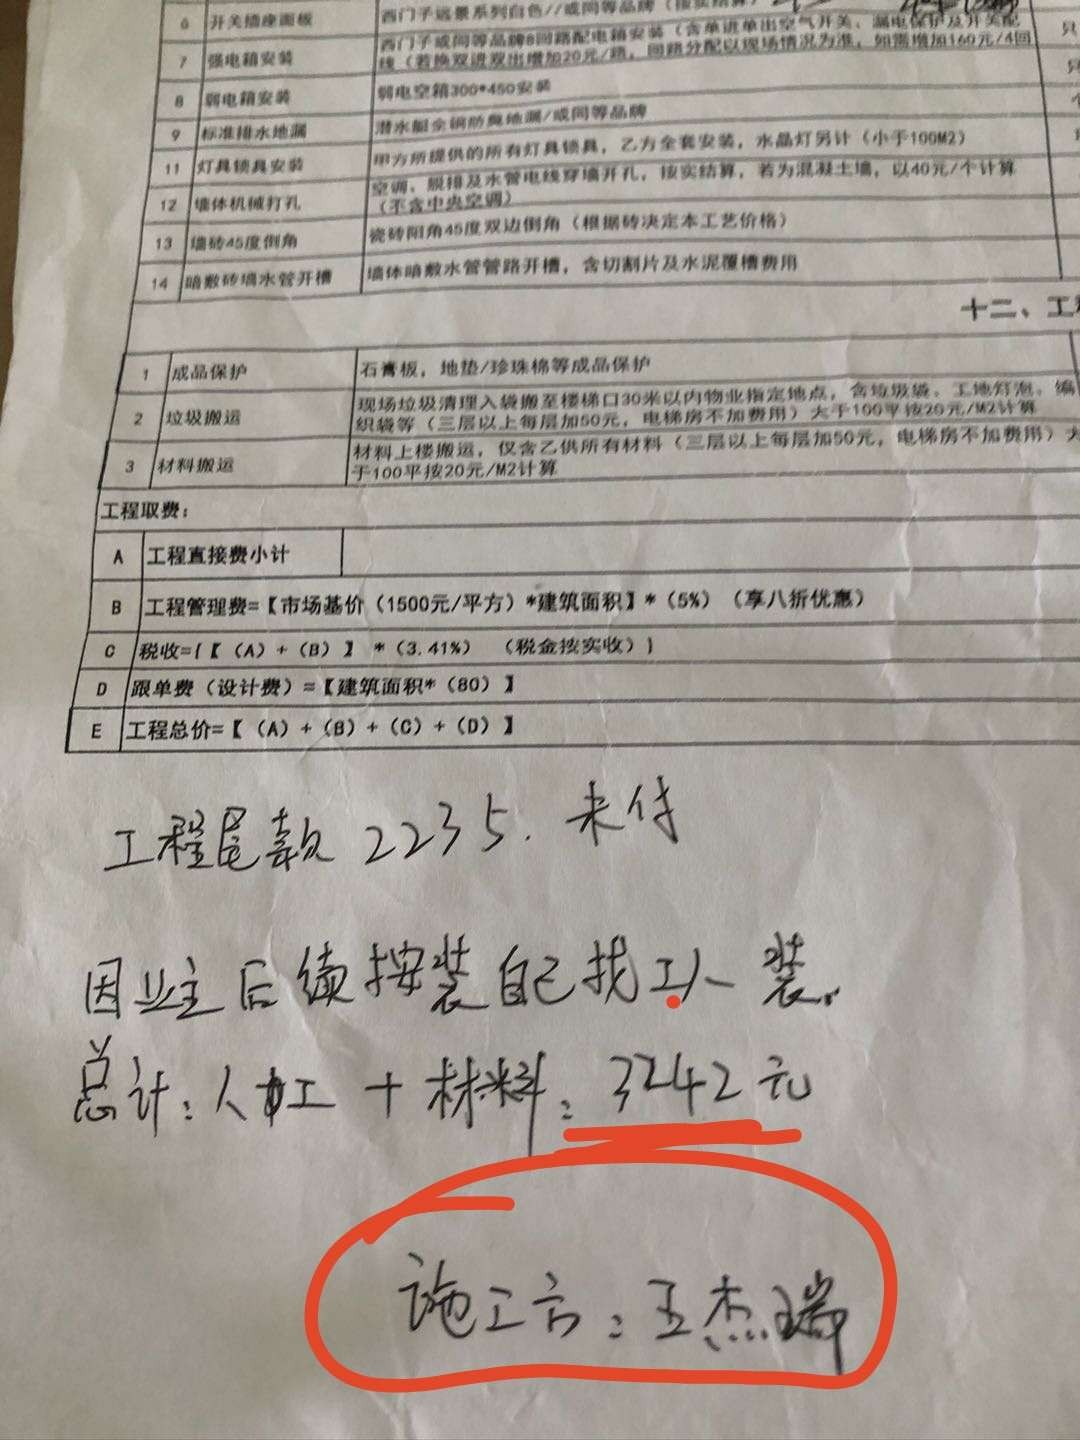 6 开关插座面板 西门子远景系列白色//或同等品牌（按实结算）
7 强电箱安装 西门子或同等品牌8回路配电箱安装（含单进单出空气开关、漏电保护及开关配
线（若换双进双出增加20元/路，回路分配以现场情况为准，如需增加160元/4回 只
8 弱电箱安装 弱电空箱300*450安装
9 标准排水地漏 潜水艇全铜防臭地漏/或同等品牌
11 灯具锁具安装 甲方所提供的所有灯具锁具，乙方全套安装，水晶灯另计（小于100M2）
12 墙体机械打孔 空调、脱排及水管电线穿墙开孔，按实结算，若为混凝土墙，以40元/个计算
（不含中央空调）
13 墙砖45度倒角 瓷砖阳角45度双边倒角（根据砖决定本工艺价格）
14 暗敷砖墙水管开槽 墙体暗敷水管管路开槽，含切割片及水泥覆槽费用
十二、工程
1 成品保护 石膏板，地垫/珍珠棉等成品保护
2 垃圾搬运 现场垃圾清理入袋搬至楼梯口30米以内物业指定地点，含垃圾袋、工地灯泡、编
织袋等（三层以上每层加50元，电梯房不加费用）大于100平按20元/M2计算
3 材料搬运 材料上楼搬运，仅含乙供所有材料（三层以上每层加50元，电梯房不加费用）大
于100平按20元/M2计算
工程取费：
A 工程直接费小计
B 工程管理费=【市场基价（1500元/平方）*建筑面积】*（5%）（享八折优惠）
C 税收={【（A）+（B）】*（3.41%） （税金按实收）}
D 跟单费（设计费）=【建筑面积*（80）】
E 工程总价=【（A）+（B）+（C）+（D）】
工程尾款2235.未付
因业主后续按装自己找工人装.
总计：人工+材料：3242元
施工方：王杰瑞